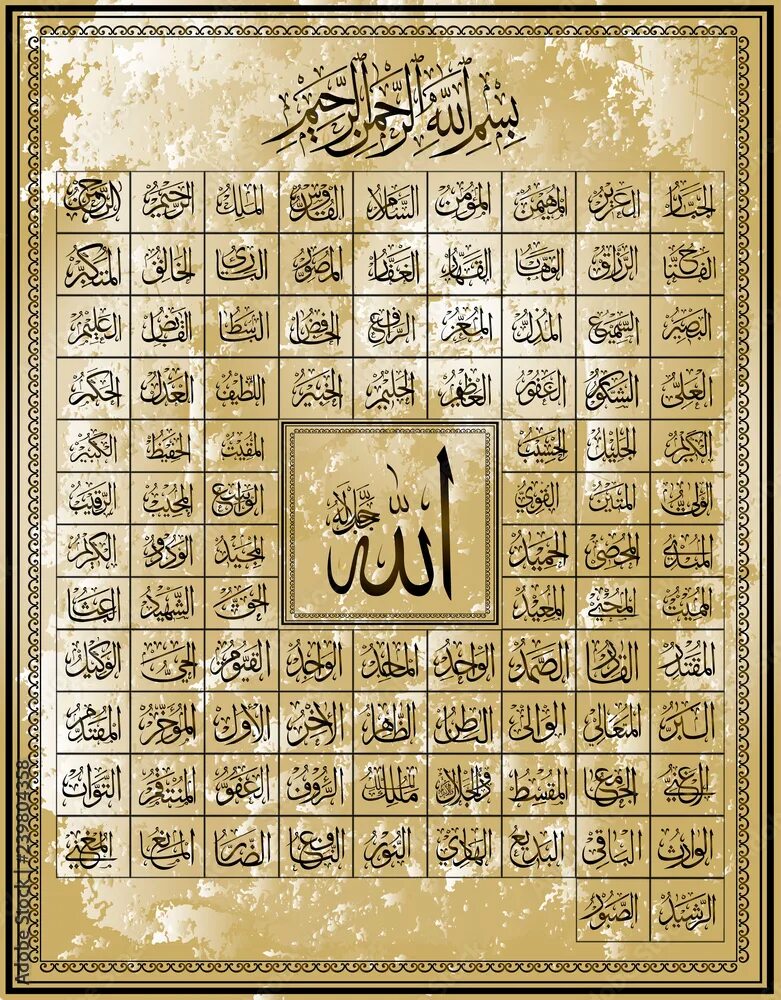 بسم الله الرحمن الرحيم
الجبار العزيز المهيمن المؤمن السلام القدوس الملك الرحيم الرحمن
الفتاح الرزاق الوهاب القهار الغفار المصور البارئ الخالق المتكبر
البصير السميع المذل المعز الرافع الخافض الباسط القابض العليم
العلي الشكور الغفور العظيم الحليم الخبير اللطيف العدل الحكم
الكريم الجليل الحسيب المقيت الحفيظ الكبير
الولي المتين القوي الواسع المجيب الرقيب
الله جل جلاله
المبدئ المحصي الحميد المجيد الودود
المميت المحيي المعيد الحق الشهيد الباعث
المقتدر القادر الصمد الواحد الماجد الواجد القيوم الحي الوكيل
البر المتعالي الوالي الباطن الظاهر الآخر الأول المؤخر المقدم
الغني الجامع المقسط مالك الرؤوف العفو المنتقم التواب
الوارث الباقي البديع الهادي النور النافع الضار المانع المغني
الرشيد الصبور
Adobe Stock | #239804358